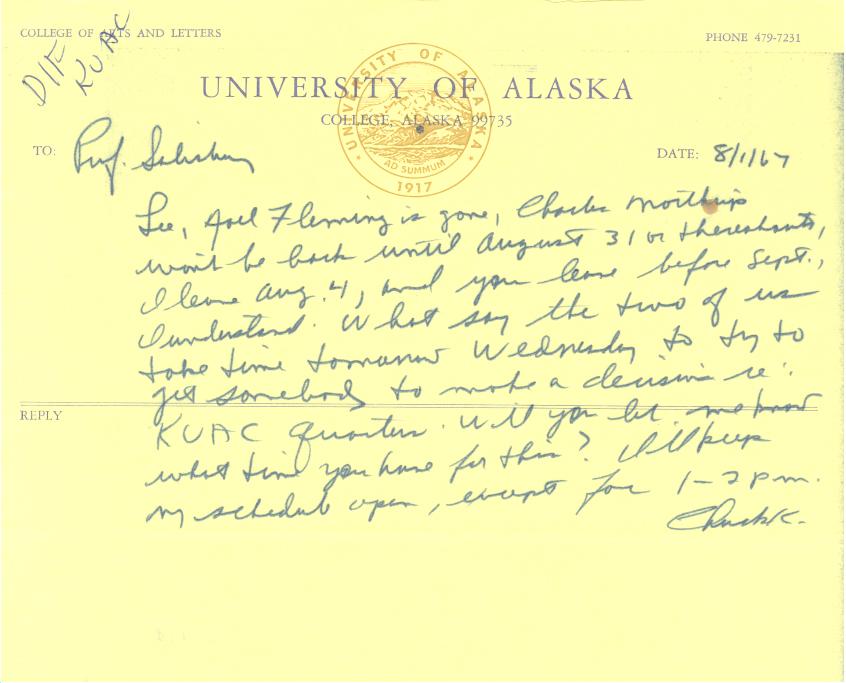 COLLEGE OF ARTS AND LETTERS
PHONE 479-7231
D/F
KUAC
UNIVERSITY OF ALASKA
COLLEGE, ALASKA 99735
UNIVERSITY OF ALASKA
AD SUMMUM
1917
TO: Prof. Salisbury
DATE: 8/1/67
Lee, Joel Fleming is gone, Charles Northrip
won't be back until August 31 or thereabouts,
I leave Aug. 4, and you leave before Sept.,
I understand. What say the two of us
take time tomorrow Wednesday to try to
get somebody to make a decision re:
REPLY
KUAC quarters. Will you let me know
what time you have for this? I'll keep
my schedule open, except for 1-2 pm.
Chuck K.